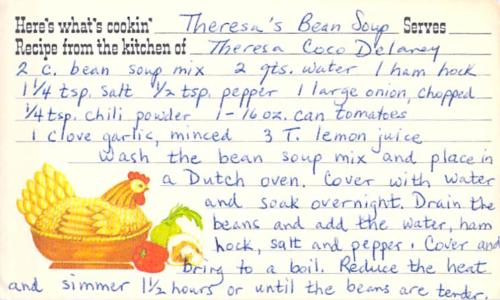 Here's what's cookin' Theresa's Bean Soup Serves
Recipe from the kitchen of Theresa Coco Delaney
2 c. bean soup mix 2 qts. water 1 ham hock
1 1/4 tsp. salt 1/2 tsp. pepper 1 large onion, chopped
1/4 tsp. chili powder 1-16 oz. can tomatoes
1 clove garlic, minced 3 T. lemon juice
Wash the bean soup mix and place in
a Dutch oven. Cover with water
and soak overnight. Drain the
beans and add the water, ham
hock, salt and pepper. Cover and
bring to a boil. Reduce the heat
and simmer 1 1/2 hours or until the beans are tender.